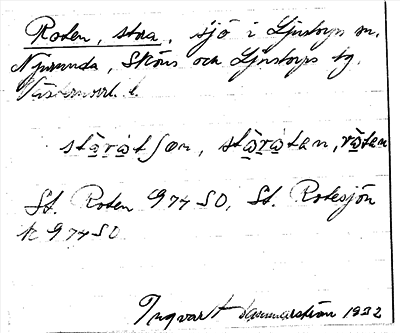 Roten, stora, sjö i Ljustorps sn.
Njurunda, Sköns och Ljustorps tg.
Västernorrl. l.
stòràtʃøn, stòràtən, ròtən
St. Roten G 74 SO, St. Rotesjön
k G 74 SO
Ingvart Hammarström 1932